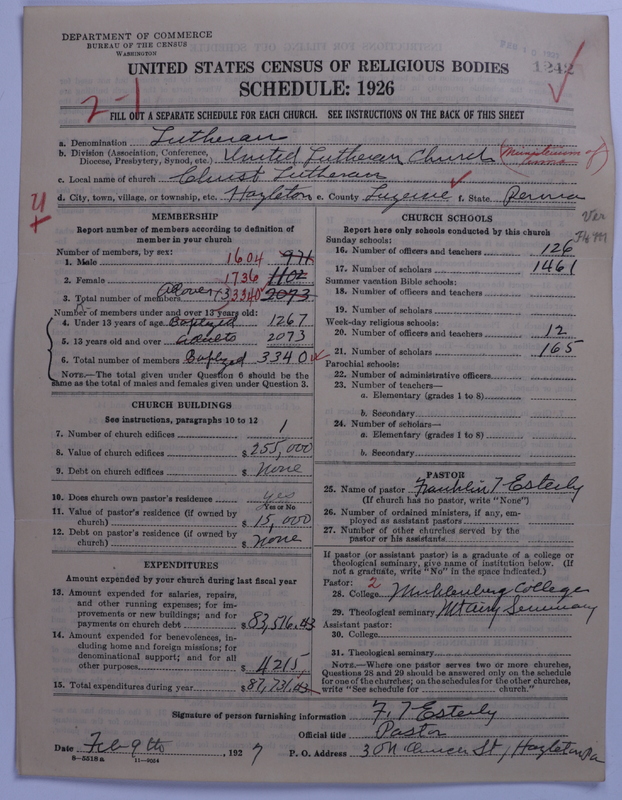 DEPARTMENT OF COMMERCE
BUREAU OF THE CENSUS
WASHINGTON
1242
UNITED STATES CENSUS OF RELIGIOUS BODIES
SCHEDULE: 1926
2-1
FILL OUT A SEPARATE SCHEDULE FOR EACH CHURCH. SEE INSTRUCTIONS ON THE BACK OF THIS SHEET
a. Denomination Lutheran
b. Division (Association, Conference, Diocese, Presbytery, Synod, etc.) United Lutheran Church (Ministerium of
c. Local name of church Christ Lutheran
d. City, town, village, or township, etc. Hazleton e. County Luzerne f. State Penna
MEMBERSHIP
Report number of members according to definition of
member in your church
Number of members, by sex:
1. Male 1604 971
2. Female 1736 1102
3. Total number of members over 13 3340 2073
Number of members under and over 13 years old:
4. Under 13 years of age Baptized 1267
5. 13 years old and over adults 2073
6. Total number of members Baptized 3340
NOTE.—The total given under Question 6 should be the
same as the total of males and females given under Question 3.
CHURCH BUILDINGS
See instructions, paragraphs 10 to 12
7. Number of church edifices 1
8. Value of church edifices $ 255,000
9. Debt on church edifices $ None
10. Does church own pastor's residence yes
Yes or No
11. Value of pastor's residence (if owned by
church) $ 15,000
12. Debt on pastor's residence (if owned by
church) $ None
EXPENDITURES
Amount expended by your church during last fiscal year
13. Amount expended for salaries, repairs,
and other running expenses; for im-
provements or new buildings; and for
payments on church debt $ 83,516.43
14. Amount expended for benevolences, in-
cluding home and foreign missions; for
denominational support; and for all
other purposes $ 4215.
15. Total expenditures during year $ 87,731.43
CHURCH SCHOOLS
Report here only schools conducted by this church
Sunday schools:
16. Number of officers and teachers 126
17. Number of scholars 1461
Summer vacation Bible schools:
18. Number of officers and teachers
19. Number of scholars
Week-day religious schools:
20. Number of officers and teachers 12
21. Number of scholars 165
Parochial schools:
22. Number of administrative officers
23. Number of teachers—
a. Elementary (grades 1 to 8)
b. Secondary
24. Number of scholars—
a. Elementary (grades 1 to 8)
b. Secondary
PASTOR
25. Name of pastor Franklin T Esterly
(If church has no pastor, write "None")
26. Number of ordained ministers, if any, em-
ployed as assistant pastors
27. Number of other churches served by the
pastor or his assistants
If pastor (or assistant pastor) is a graduate of a college or
theological seminary, give name of institution below. (If
not a graduate, write "No" in the space indicated.)
Pastor: 2
28. College Muhlenberg College
29. Theological seminary Mt Airy Seminary
Assistant pastor:
30. College
31. Theological seminary
NOTE.—Where one pastor serves two or more churches,
Questions 28 and 29 should be answered only on the schedule
for one of the churches; on the schedules for the other churches,
write "See schedule for church."
Signature of person furnishing information F. T Esterly
Official title Pastor
Date Feb 9th, 1927 P. O. Address Church St, Hazleton Pa
8-5518a 11-9024